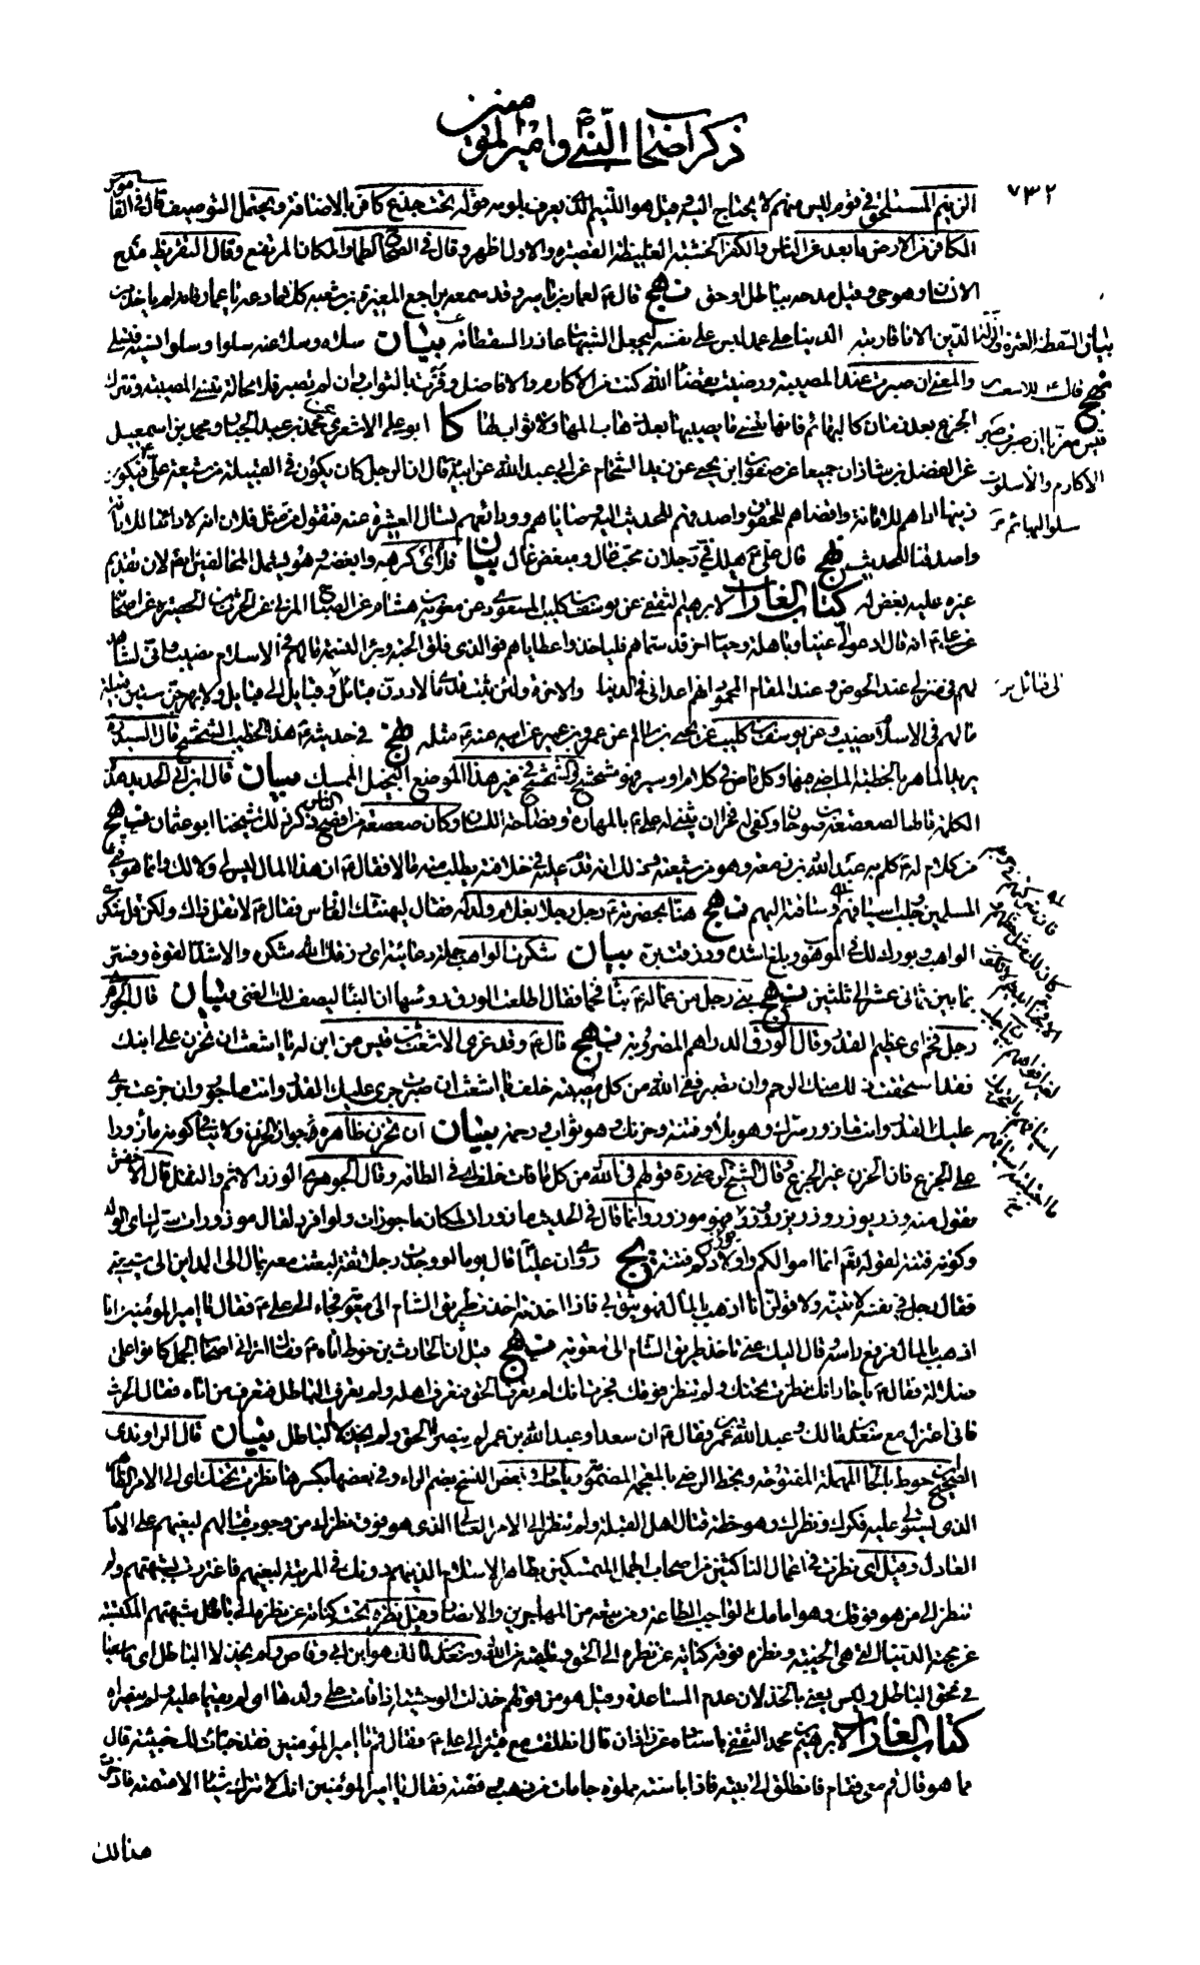 ذكر أصحاب النبي وأمير المؤمنين
٧٣٢
الزنيم المستلحق في قوم ليس منهم لا يحتاج إليه وقيل هو اللئيم الذي يعرف بلومه قوله تحت جذع كافر بالإضافة ويحتمل التوصيف قال في القاموس
الكافر من الأرض ما بعد عن الناس والكفر الخشبة الغليظة القصيرة والأول أظهر وقال في الصحاح الطما والمكان المرتفع وقال التقريظ مدح
الإنسان وهو حي وقيل مدحه بباطل أو حق نهج قال ع لعمار بن ياسر وقد سمعه يراجع المغيرة بن شعبة كلاما دعه يا عمار فإنه لم يأخذ من
الدين إلا ما قاربته الدنيا وعلى عمد لبس على نفسه ليجعل الشبهات عاذرا لسقطاته بيان سلاه وسلا عنه سلوا وسلوا نسيه فتسلى
والمعنى إن صبرت عند المصيبة ورضيت بقضاء الله كنت من الأكارم والأفاضل وقرنت بالثواب وإن لم تصبر فلا محالة تنسى المصيبة وتترك
الجزع بعد زمان كالبهائم فإنها تنسى ما يصيبها بعد ذهاب المها ولا ثواب لها كا أبو علي الأشعري عن محمد بن عبد الجبار ومحمد بن إسمعيل
عن الفضل بن شاذان جميعا عن صفوان بن يحيى عن زيد الشحام عن أبي عبد الله عن أبيه قال إن الرجل كان يكون في القبيلة من شيعة علي ع فيكون
زينها أداهم للأمانة وأقضاهم للحقوق وأصدقهم للحديث إليه وصاياهم وودائعهم تسأل العشيرة عنه فتقول من مثل فلان إنه لأدانا للأمانة
وأصدقنا للحديث نهج قال علي ع هلك في رجلان محب غال ومبغض قال بيان قلاه أي كرهه وأبغضه وهو يشمل المخالفين أيضا لأن تقديم
غيره عليه بغض له كتاب الغارات لإبراهيم الثقفي عن يوسف بن كليب المسعودي عن معوية بن هشام عن الصباح المزني عن الحرث بن الحصيرة عن أصحابه
عن علي ع أنه قال ادعوا لي غنيا وباهلة وحيا آخر قد سماهم فليأخذوا عطاياهم فوالذي فلق الحبة وبرأ النسمة ما لهم في الإسلام نصيب وإني لشاهد
لهم في منزلي عند الحوض وعند المقام المحمود أنهم أعدائي في الدنيا والآخرة ولئن ثبتت قدماي لأردن قبائل في قبائل إلى قبائل ولأبهرجن ستين قبيلة
ما لهم في الإسلام نصيب وعن يوسف بن كليب عن يحيى بن سالم عن عمرو بن عمير عن أبيه عنه ع مثله نهج في حديثه ع هذا الخطيب الشحشح قال السيد
يريد الماهر بالخطبة الماضي فيها وكل ماض في كلام أو سير فهو شحشح والشحشح في غير هذا الموضع البخيل الممسك بيان قال ابن أبي الحديد هذه
الكلمة قالها لصعصعة بن صوحان وكفى له فخرا أن يثني له علي ع بالمهارة وفصاحة اللسان وكان صعصعة من أفصح الناس ذكر ذلك شيخنا أبو عثمان نهج
من كلام له ع كلم به عبد الله بن زمعة وهو من شيعته وذلك أنه قدم عليه في خلافته يطلب منه مالا فقال ع إن هذا المال ليس لي ولا لك وإنما هو فيء
المسلمين وجلب أسيافهم نهج هنأ بحضرته ع رجل رجلا بغلام ولد له فقال ليهنئك الفارس فقال ع لا تقل ذلك ولكن قل شكرت
الواهب وبورك لك في الموهوب وبلغ أشده ورزقت بره بيان شكرت الواهب جملة دعائية أي رزقك الله شكره والأشد القوة وفسر
بما بين ثماني عشر إلى ثلثين نهج بنى رجل من عماله ع بناء فخما فقال اطلعت الورق رءوسها إن البناء ليصف لك الغنى بيان قال الجوهري
رجل فخم أي عظيم القدر وقال الورق الدراهم المضروبة نهج قال ع وقد عزى الأشعث بن قيس عن ابن له يا أشعث إن تحزن على ابنك
فقد استحقت ذلك منك الرحم وإن تصبر ففي الله من كل مصيبة خلف يا أشعث إن صبرت جرى عليك القدر وأنت مأجور وإن جزعت جرى
عليك القدر وأنت مأزور سرك وهو بلاء وفتنة وحزنك وهو ثواب ورحمة بيان إن تحزن ظاهره جواز الحزن ولا ينافي كونه مأزورا
على الجزع فإن الحزن غير الجزع وقال الشيخ الرضي ره قولهم في الله من كل ما فات خلف أي في ألطافه وقال الجوهري الوزر الإثم والثقل قال الأخفش
تقول منه وزر يوزر ووزر يزر ووزر يوزر فهو موزور وإنما قال في الحديث مأزورات لمكان مأجورات ولو أفرد لقال موزورات
وكونه فتنة لقوله تعالى إنما أموالكم وأولادكم فتنة يج روي أن عليا قال يوما لو وجدت رجلا ثقة لبعثت معه بمال إلى المداين إلى شيعته
فقال رجل في نفسه لآتينه ولأقولن أنا أذهب بالمال فهو يثق بي فإذا أخذته أخذت طريق الشام إلى معوية فجاء إلى علي ع فقال يا أمير المؤمنين أنا
أذهب بالمال فرفع رأسه قال إليك عني تأخذ طريق الشام إلى معوية نهج قيل إن الحارث بن حوط أتاه ع فقال أتراني أظن أصحاب الجمل كانوا على
ضلالة فقال ع يا حار إنك نظرت تحتك ولم تنظر فوقك فحرت إنك لم تعرف الحق فتعرف أهله ولم تعرف الباطل فتعرف من أتاه فقال الحرث
فإني أعتزل مع سعد بن مالك وعبد الله بن عمر فقال ع إن سعدا وعبد الله بن عمر لم ينصرا الحق ولم يخذلا الباطل بيان قال الراوندي
الصحيح حوط بالحاء المهملة المفتوحة وبخط الرضي بالمعجمة المضمومة ويا حار في بعض النسخ بضم الراء وفي بعضها بكسرها نظرت تحتك أي إلى الأمر الظاهر
الذي يستولي عليه فكرك ونظرك وهو خطر قتال أهل القبلة ولم تنظر إلى الأمر العالي الذي هو فوق نظرك من وجوب قتالهم لبغيهم على الإمام
العادل وقيل أي نظرت في أعمال الناكثين من أصحاب الجمل المتمسكين بظاهر الإسلام الذين هم دونك في المرتبة لبغيهم فاغتررت بشبهتهم ولم
تنظر إلى من هو فوقك وهو إمامك الواجب الطاعة ومن تبعه من المهاجرين والأنصار وقيل نظره تحت كناية عن نظره إلى باطل شبهتهم المكتسبة
عن محبة الدنيا التي هي الجنبة ونظره فوقه كناية عن نظره إلى الحق وتلقيه من الله وسعد بن مالك هو ابن أبي وقاص ولم يخذلا الباطل أي ما سعيا
في محق الباطل وليس يعني بالخذلان عدم المساعدة وقيل هو من قولهم خذلت الوحشية إذا قامت على ولدها أي لم يقيما عليه ولم ينصراه
كتاب الغارات لإبراهيم بن محمد الثقفي بإسناده عن زاذان قال انطلقت مع قنبر إلى علي ع فقال قم يا أمير المؤمنين فقد خبأت لك خبيئة قال
فما هو قال قم معي فقام فانطلق إلى بيته فإذا باسنة مملوة جامات من ذهب وفضة فقال يا أمير المؤمنين إنك لا تترك شيئا إلا قسمته فادخرت
هذا لك